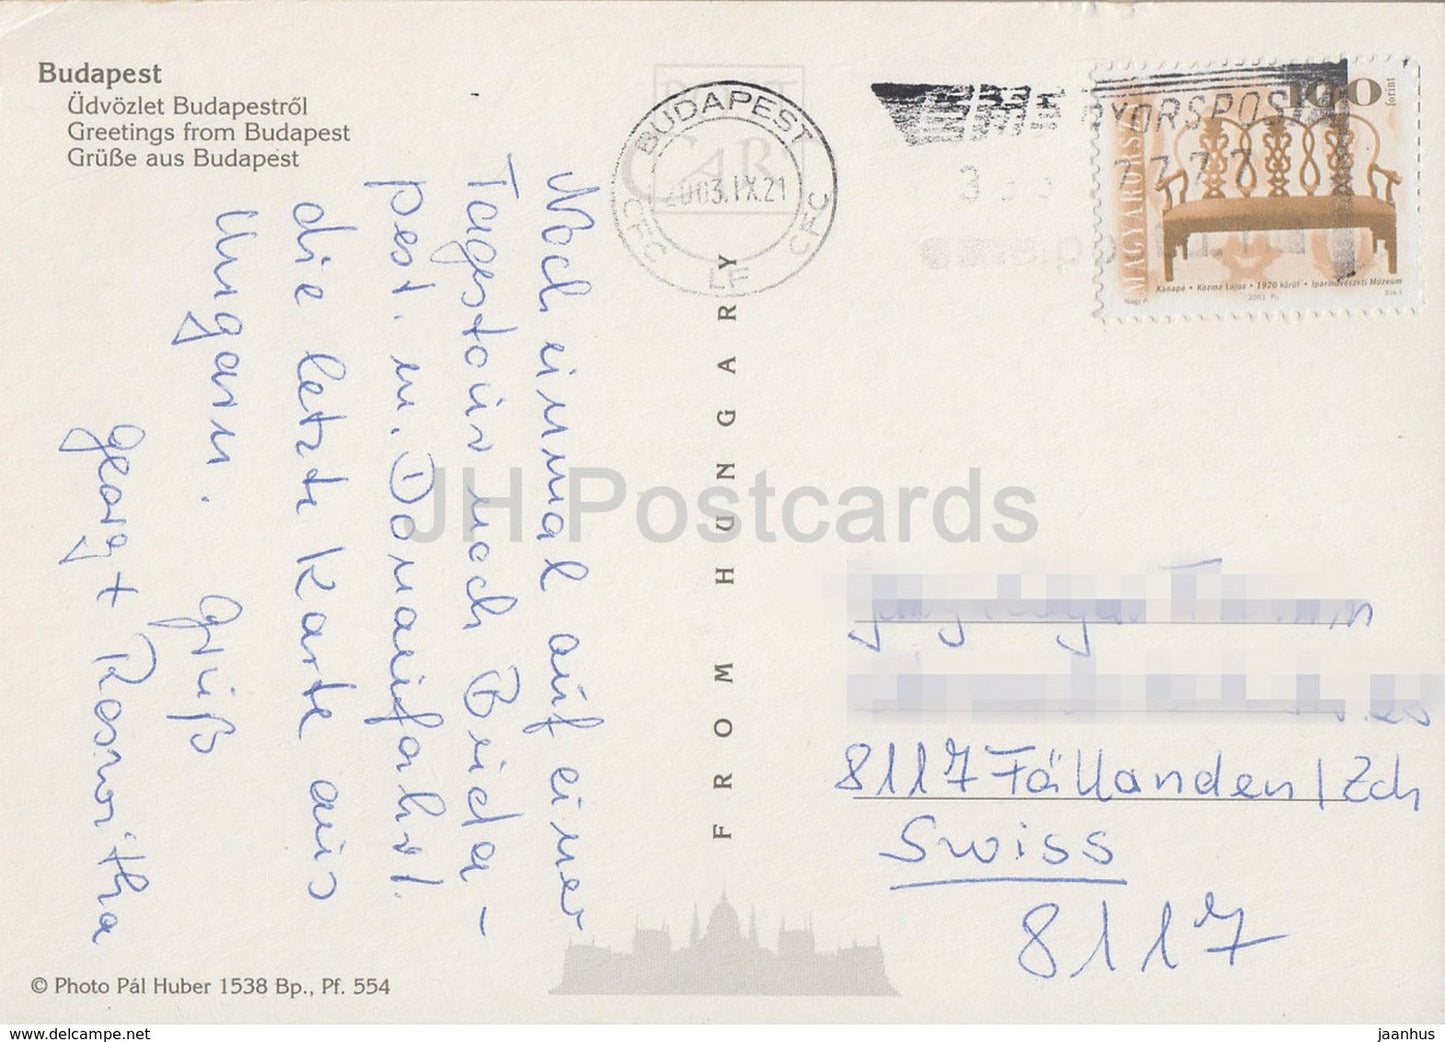 Budapest
Üdvözlet Budapestről
Greetings from Budapest
Grüße aus Budapest
BUDAPEST
2003.IX.21
CFC
CFC
LF
GYORSPOST
7777
100
forint
MAGYARORSZÁG
Kanapé • Kozma Lajos • 1920 körül • Iparművészeti Múzeum
Nagy P.
2001
Noch einmal auf einer
Tagestour nach Buda-
pest. m. Donaufahrt.
die letzte Karte aus
Ungarn.
Gruß
Georg + Roswitha
FROM HUNGARY
JH Postcards
8117 Fällanden / Zch
Swiss
8117
© Photo Pál Huber 1538 Bp., Pf. 554
www.delcampe.net
jaanhus